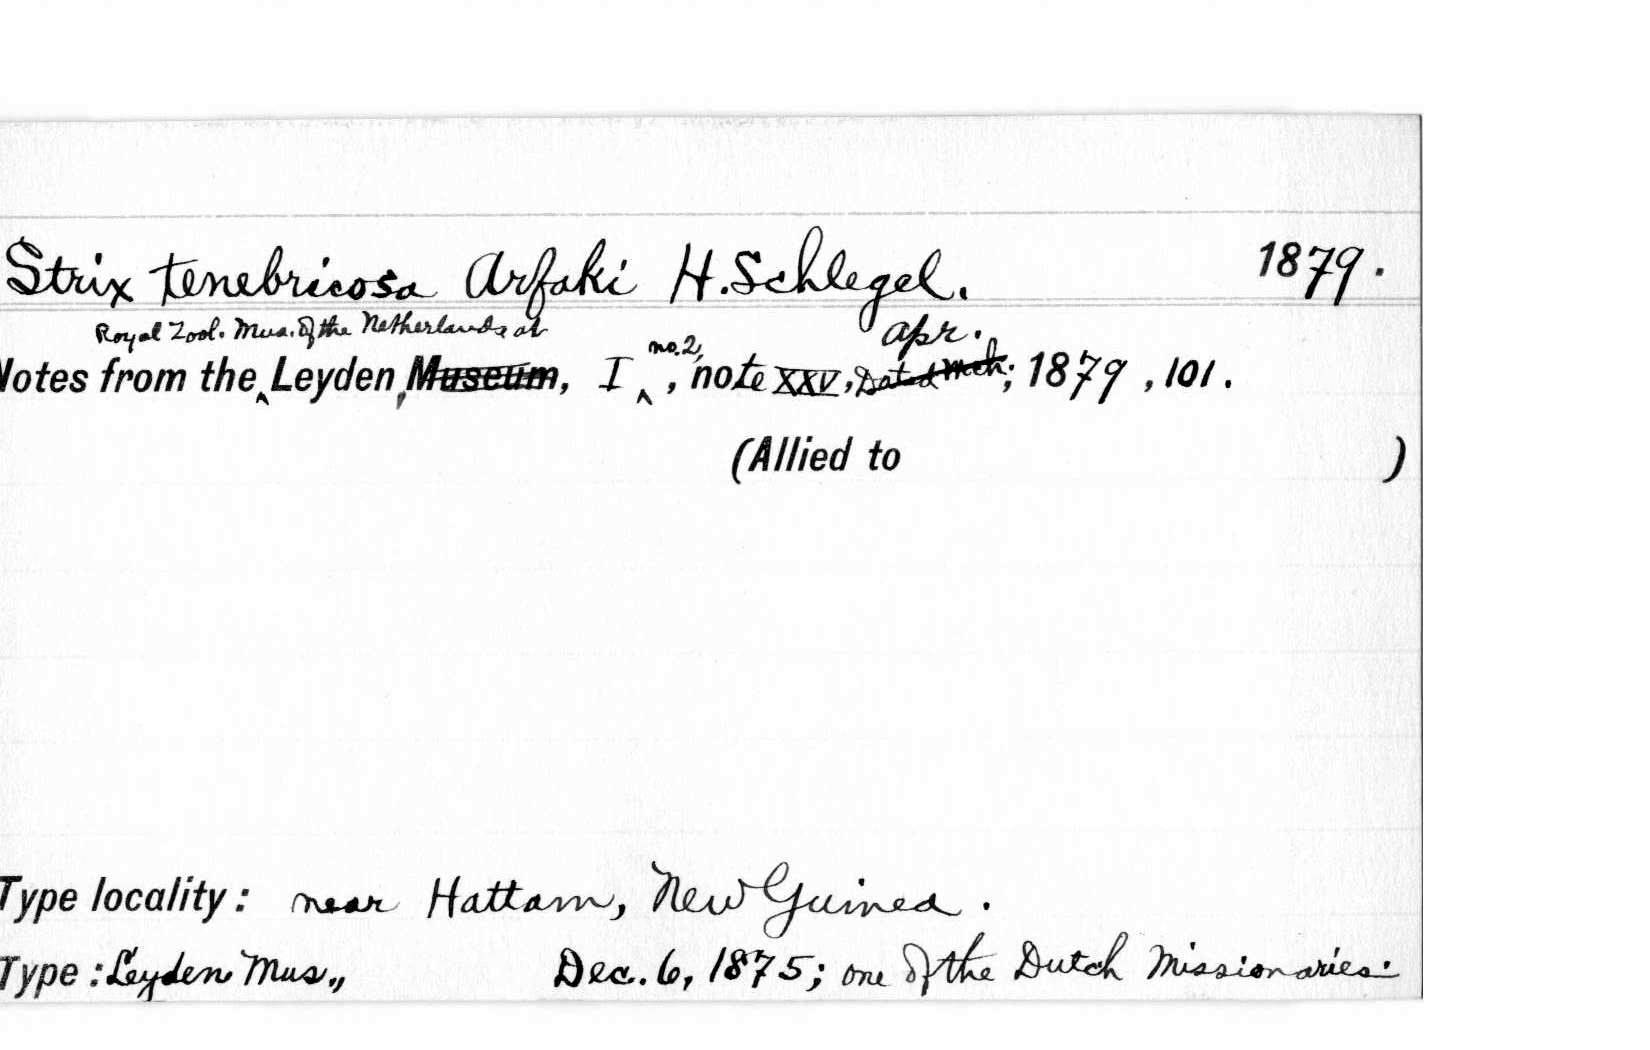 Strix tenebricosa Arfaki H. Schlegel. 1879.
Royal Zool. Mus. of the Netherlands at
no. 2, Apr.
Notes from the Leyden, Museum, I, note XXV, Dated Mch; 1879, 101.
(Allied to )
Type locality: near Hattam, New Guinea.
Type: Leyden Mus., Dec. 6, 1875; one of the Dutch Missionaries.